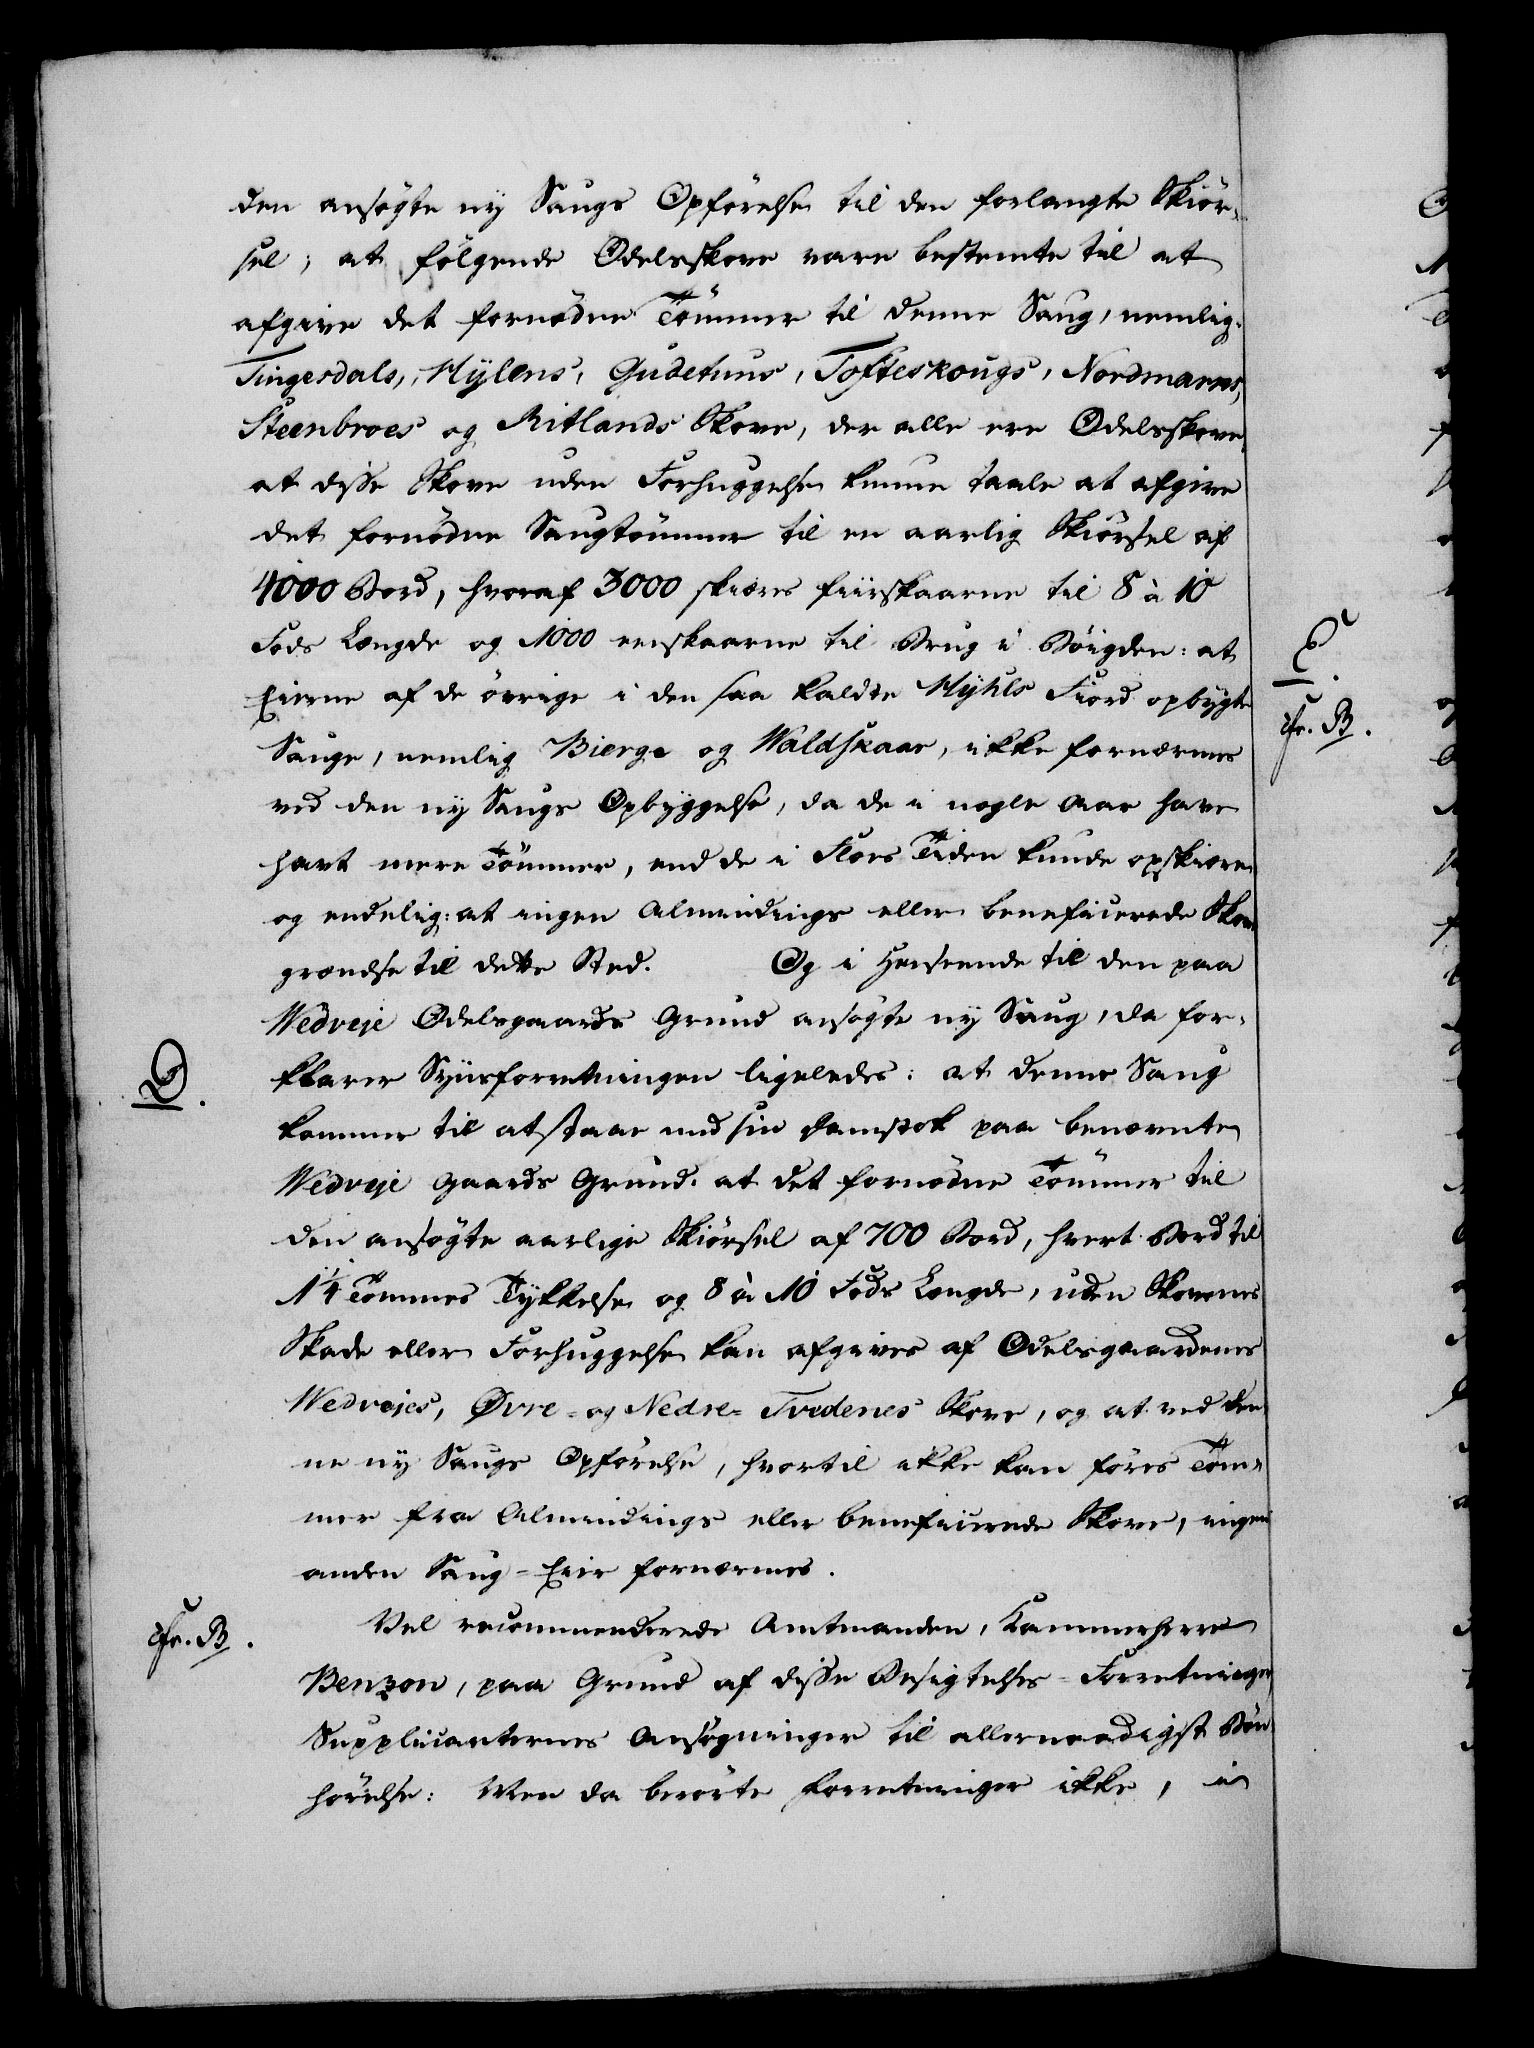 den ansøgte ny Saugs Opförelse til den forlangte Skiör-
sel; at følgende Odelsskove vare bestemte til at
afgive det fornødne Tömmer til denne Saug, nemlig:
Tingesdals, Hylens, Gudetuns, Tofteskougs, Nordmarks,
Steenbroes og Ritlands Skove, der alle ere Odelsskove,
at disse Skove uden Forhuggelse kunne taale at afgive
det fornødne Saugtömmer til en aarlig Skiørsel af
4000 Bord, hvoraf 3000 skiæres fiirskaarne til 8 à 10
Fods Længde og 1000 eenskaarne til Brug i Böigden: at
Eierne af de övrige i den saa kaldte Hyhls Fiord opbygte
Sauge, nemlig Bierge og Waldskaar, ikke fornærmes
ved den ny Saugs Opbyggelse, da de i nogle Aar have
havt mere Tömmer, end de i Flors Tiden kunde opskiære
og endelig: at ingen Almindings eller beneficerede Skove
grændse til dette Sted. Og i Henseende til den paa
Wedveje Odelsgaards Grund ansøgte ny Saug, da for-
klarer Synsforretningen ligeledes: at denne Saug
kommer til at staae med sin Damstok paa benævnte
Wedveje Gaards Grund. at det fornødne Tömmer til
den ansøgte aarlige Skiörsel af 700 Bord, hvert Bord til
1¼ Tommes Tykkelse og 8 à 10 Fods Længde, uden Skovenes
Skade eller Forhuggelse kan afgives af Odelsgaardenes
Wedvejes, Øvre- og Nedre- Tvedenes Skove, og at ved den-
ne ny Saugs Opførelse, hvortil ikke kan føres Töm-
mer fra Almindings eller beneficerede Skove, ingen
anden Saug-Eier fornærmes.
Vel recommenderede Amtmanden, Kammerherre
Benzon, paa Grund af disse Besigtelses-Forretninger
Supplicanternes Ansøgninger til allernaadigst Bøn-
hørelse: Men da berørte Forretninger ikke, i
D.
cfr. B.
E.
cfr. B.